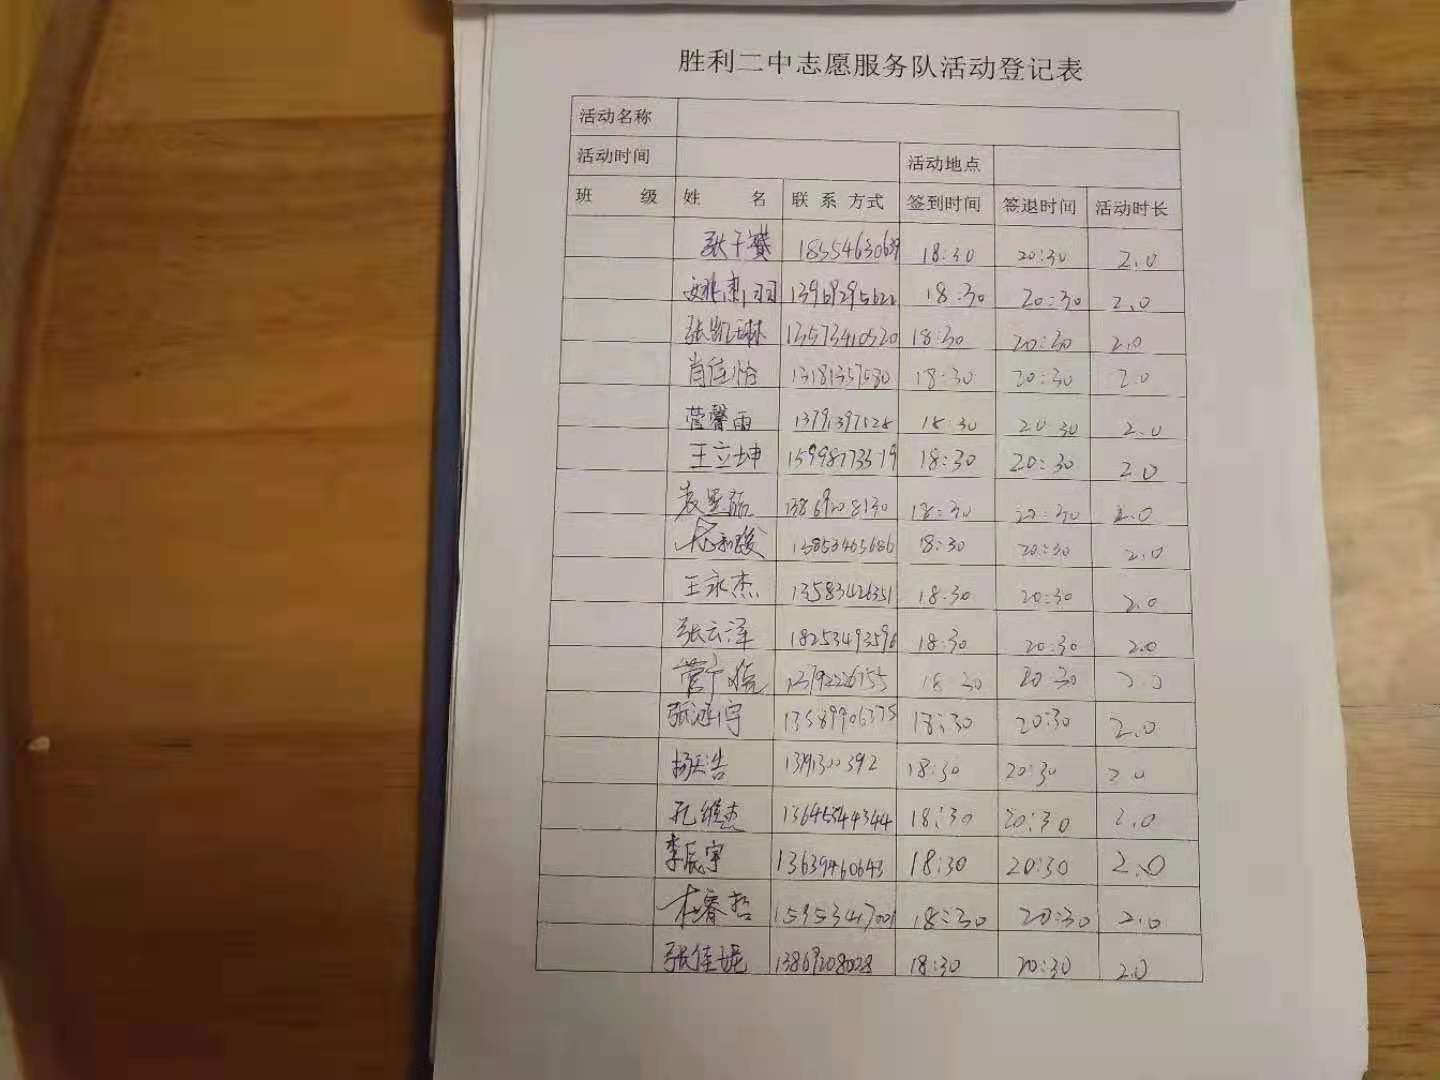 胜利二中志愿服务队活动登记表
活动名称
活动时间 活动地点
班 级 姓 名 联 系 方式 签到时间 签退时间 活动时长
张于赟 18554630639 18:30 20:30 2.0
姚肃羽 13969295622 18:30 20:30 2.0
张凯琳 13573410520 18:30 20:30 2.0
肖佳怡 18:30 20:30 2.0
菅馨雨 18:30 20:30 2.0
王立坤 18:30 20:30 2.0
18:30 20:30 2.0
18:30 20:30 2.0
王永杰 13583426351 18:30 20:30 2.0
张云泽 18253493596 18:30 20:30 2.0
18:30 20:30 2.0
13589906375 18:30 20:30 2.0
杨浩 18:30 20:30 2.0
孔维杰 13645344344 18:30 20:30 2.0
李辰宇 13639460643 18:30 20:30 2.0
杜睿哲 18:30 20:30 2.0
张佳妮 13869208028 18:30 20:30 2.0